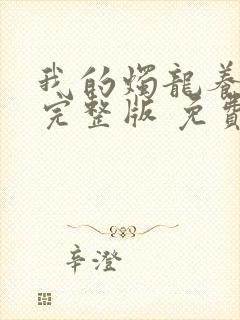 我的燭龍養
完整版 免費
辛澄